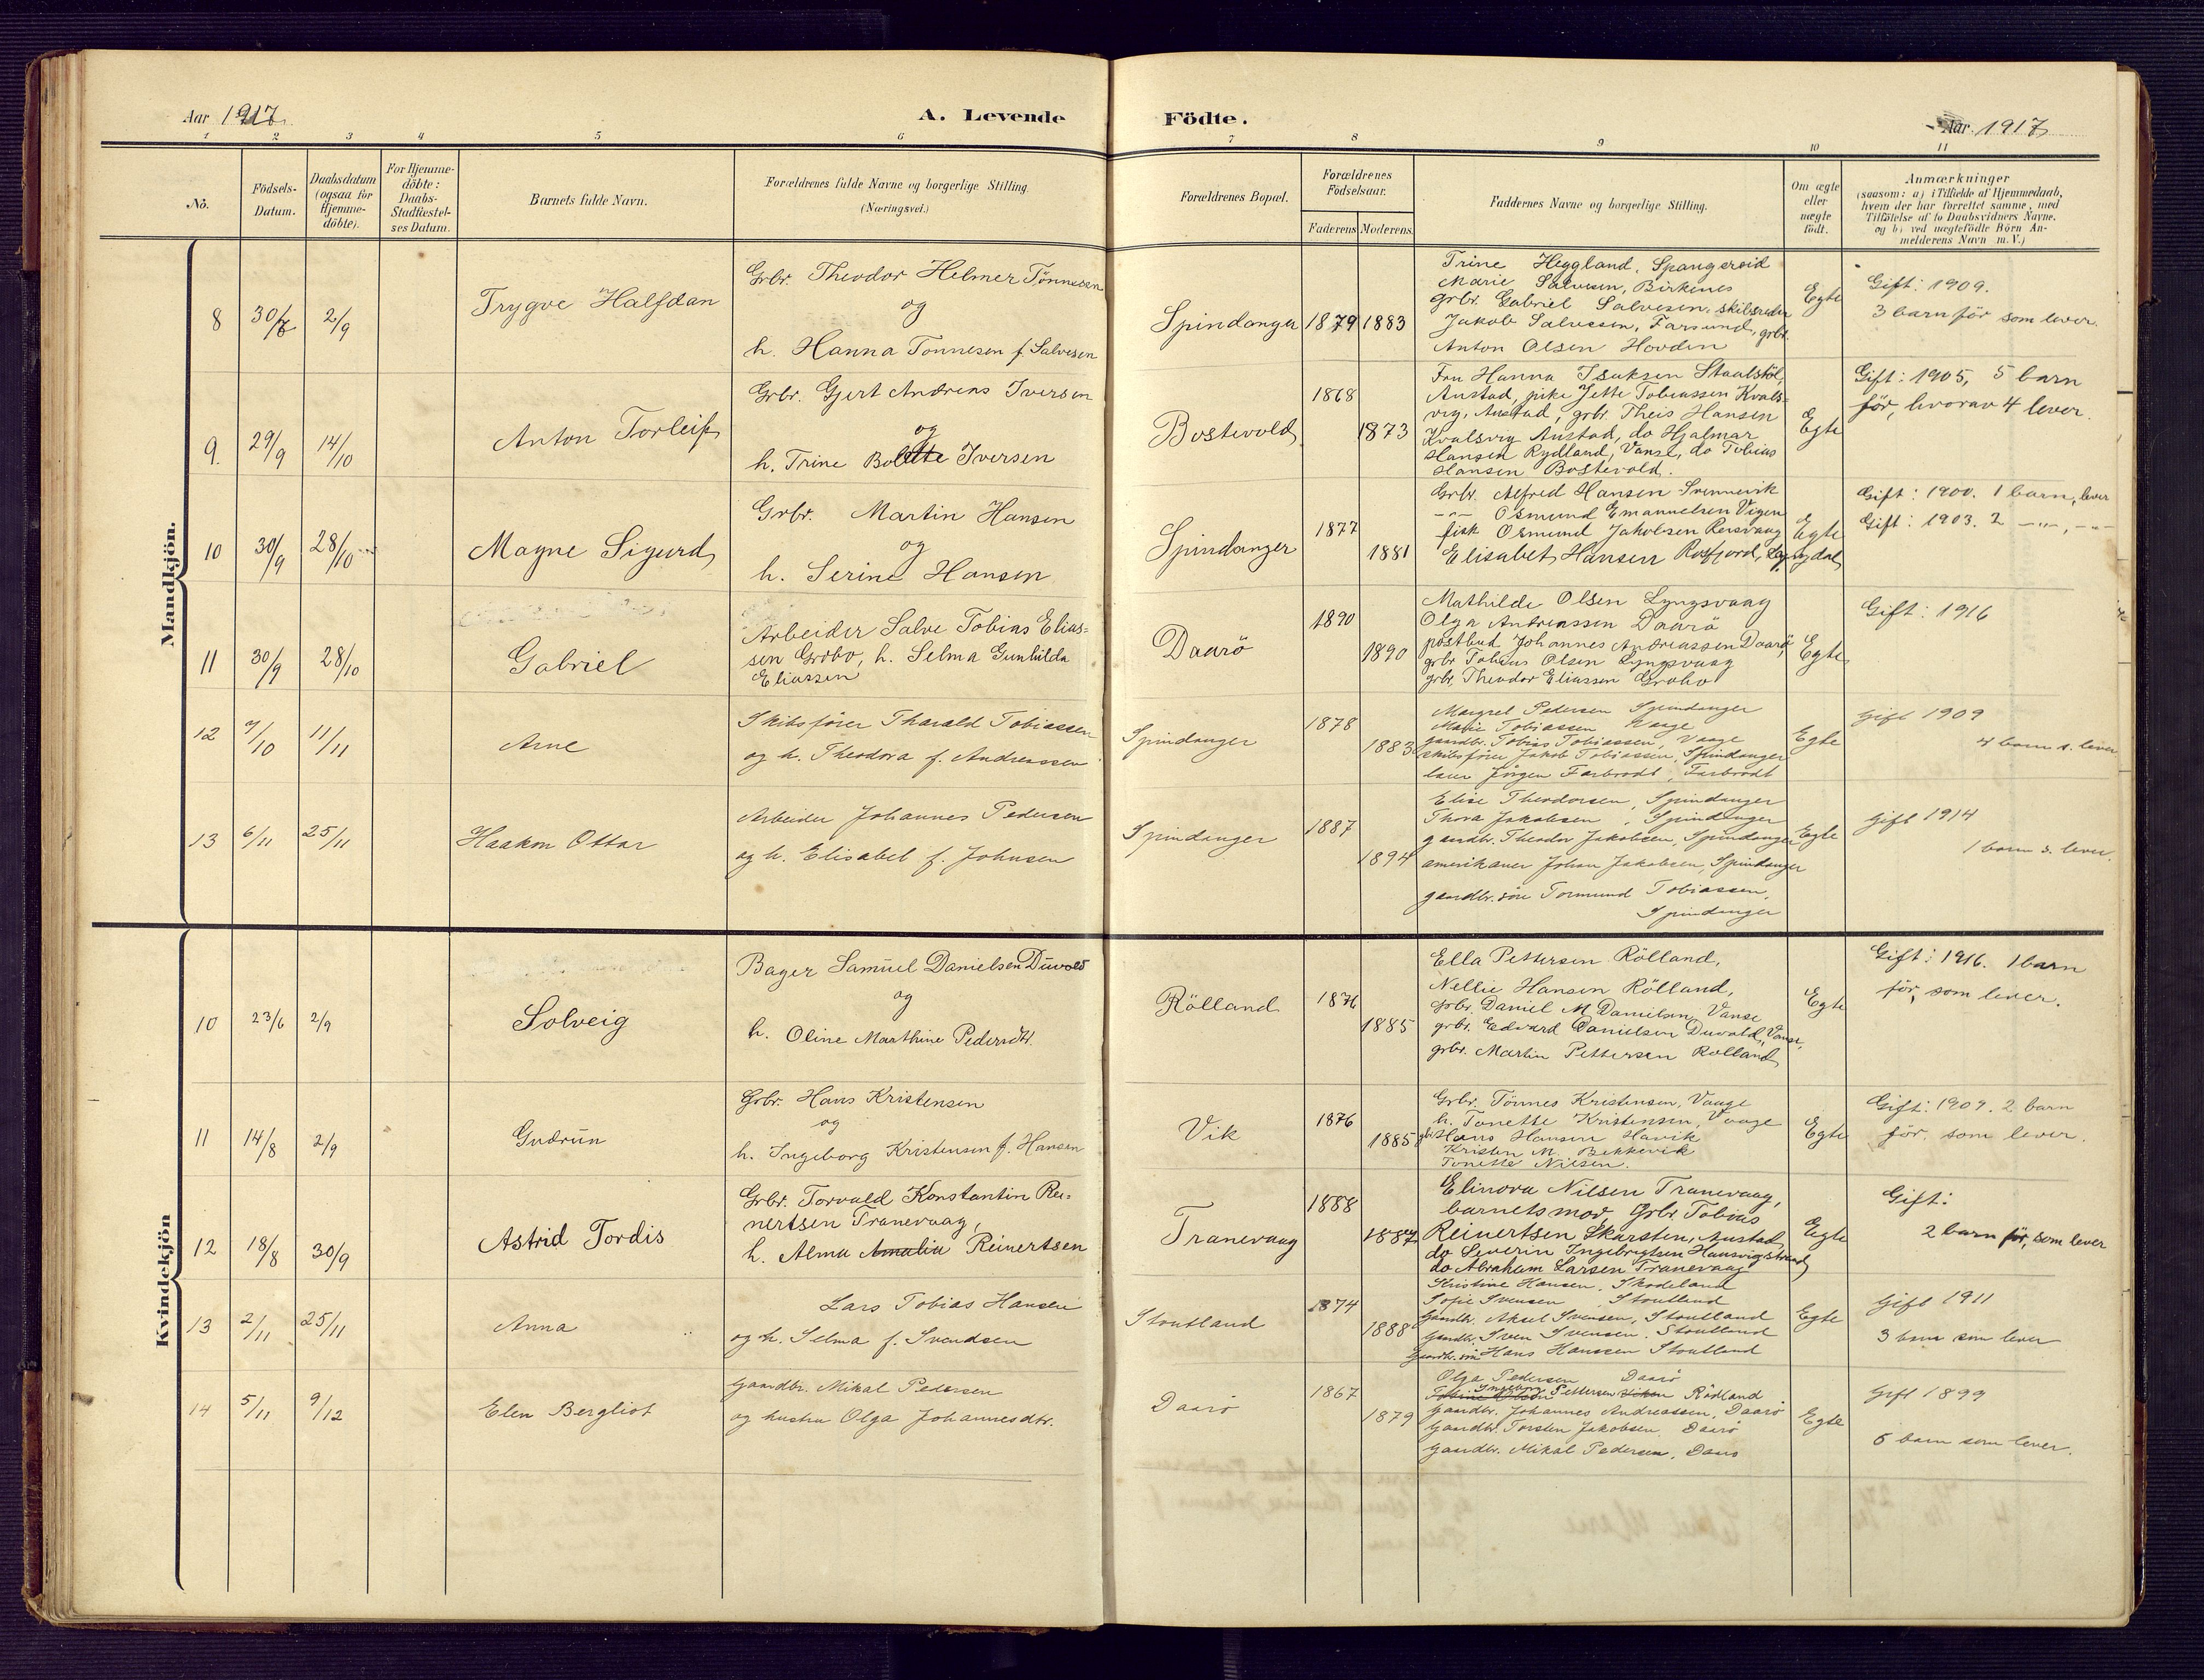 Aar 1917.
A. Levende
Födte.
Aar 1917
1 2 3 4 5 6
7 8 9 10 11
Nö.
Födsels-Datum.
Daabsdatum (ogsaa for Hjemme-döbte).
For Hjemme-döbte: Daabs-Stadfæstel-ses Datum.
Barnets fulde Navn.
Forældrenes fulde Navne og borgerlige Stilling.
(Næringsvei.)
Forældrenes Bopæl.
Forældrenes Födselsaar.
Faderens Moderens.
Faddernes Navne og borgerlige Stilling.
Om ægte eller uægte födt.
Anmærkninger
(saasom: a) i Tilfælde af Hjemmedaab,
hvem der har forrettet samme, med
Tilföielse af to Daabsvidners Navne.
og b) ved uægtefödte Börn An-
melderens Navn m. V.)
Mandkjön.
8 30/7 2/9 Trygve Halfdan
Grbr. Theodor Helmer Tönnesen
og
h. Hanna Tönnesen f. Salvesen
Spindanger 1879 1883
Trine Heggland, Spangereid
Marie Salvesen, Birkenes
grbr. Gabriel Salvesen, skibsreder
Jakob Salvesen, Farsund, grbr.
Anton Olsen Hovden
Egte
Gift: 1909.
3 barn för som lever.
9. 29/9 14/10 Anton Torleif
Grbr. Gjert Andreas Iversen
og
h. Trine Bolette Iversen
Bostevold 1868 1873
Fru Hanna Isaksen Staalstöl,
Austad, pike Jette Tobiassen Kvals-
vig, Austad, grbr. Theis Hansen
Kvalsvig Austad, do Hjalmar
Hansen Rydland, Vanse, do Tobias
Hansen Bostevold.
Egte
Gift: 1905, 5 barn
för, hvorav 4 lever.
10 30/9 28/10 Magne Sigurd
Grbr. Martin Hansen
og
h. Serine Hansen
Spindanger 1877 1881
Grbr. Alfred Hansen Svennevik
-"- Osmund Emanuelsen Vigen
fisk Osmund Jakobsen Rersvaag
Elisabet Hansen Rosfjord, Lyngdal
Egte
Gift: 1900. 1 barn, lever
Gift: 1903. 2 -"-, -"-
11 30/9 28/10 Gabriel
Arbeider Salve Tobias Elias=
sen Grobo, h. Selma Gunhilda
Eliassen
Daarö 1890 1890
Mathilde Olsen Lyngsvaag
Olga Andreassen Daarö
postbud Johannes Andreassen Daarö,
grbr Tobias Olsen Lyngsvaag
grbr. Theodor Eliassen Grobo
Egte
Gift: 1916
12 7/10 11/11 Arne
Skibsförer Tharald Tobiassen
og h. Theodora f. Andreassen
Spindanger 1878 1883
Margret Pedersen Spindanger
Marie Tobiassen Vaage
gaardbr. Tobias Tobiassen, Vaage
skibsförer Jakob Tobiassen, Spindanger
Jörgen Farbrodt, Farbrodt
Egte
Gift 1909
4 barn s. lever
13 6/11 25/11 Haakon Ottar
Arbeider Johannes Pedersen
og h. Elisabet f. Johnsen
Spindanger 1887 1894
Elise Theodorsen, Spindanger
Thora Jakobsen, Spindanger
gaardbr. Theodor Jakobsen, Spindanger
amerikaner Johan Jakobsen, Spindanger
gaardbr. sön Tormund Tobiassen,
Spindanger
Egte
Gift 1914
1 barn s. lever.
Kvindekjön
10 23/6 2/9 Solveig
Bager Samuel Danielsen Duvold
og
h. Oline Marthine Pedersdtr.
Rölland 1876 1885
Ella Pettersen Rölland,
Nellie Hansen Rölland,
grbr. Daniel M. Danielsen Vanse
grbr. Edvard Danielsen Duvold, Vanse,
grbr. Martin Pettersen Rolland
Egte
Gift: 1916. 1 barn
för, som lever.
11 14/8 2/9 Gudrun
Grbr. Hans Kristensen
og
h. Ingeborg Kristensen f. Hansen
Vik 1876 1885
Grbr. Tönnes Kristensen, Vaage
h. Tonette Kristensen, Vaage
grbr. Hans Hansen Havik
Kristen M. Bekkevik
Tonette Nilsen.
Egte
Gift: 1909. 2 barn
för, som lever.
12 18/8 30/9 Astrid Tordis
Grbr. Torvald Konstantin Rei=
nertsen Tranevaag,
h. Alma Amalia Reinertsen
Tranevaag 1888 1887
Elinora Nilsen Tranevaag,
barnets mor, Grbr. Tobias
Reinertsen Skarsten, Austad
do Severin Ingebrigtsen Hausvigstrand
do Abraham Larsen Tranevaag
Egte
Gift:
2 barn för, som lever
13 2/11 25/11 Anna
Lars Tobias Hansen
og h. Selma f. Svendsen
Stoutland 1874 1888
Kristine Hansen, Skodeland
Sofie Svensen, Stoutland
Gaardbr. Aksel Svensen, Stoutland
Gaardbr. Sven Svensen, Stoutland
Gaardbr. sön Hans Hanssen Stoutland
Egte
Gift 1911
3 barn som lever
14 5/11 9/12 Elen Bergliot
Gaardbr. Mikal Pedersen
og hustru Olga Johannesdtr.
Daarö 1867 1879
Olga Pedersen Daarö
Ingeborg Pettersen Rödland
Gaardbr. Johannes Andreassen, Daarö
Gaardbr. Torsten Jakobsen, Daarö
Gaardbr. Mikal Pedersen, Daarö
Egte
Gift 1899
6 barn som lever.